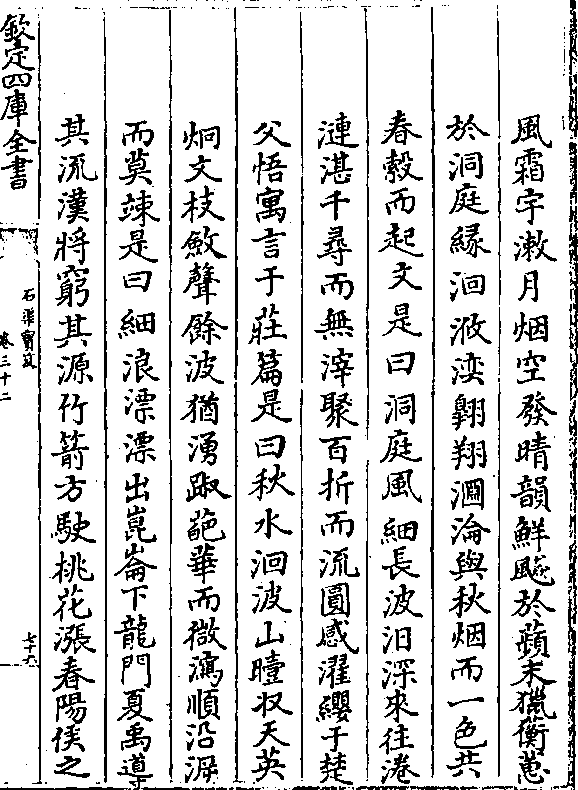 風霜宇漱月烟空發晴韻鮮飈於蘋末獵衡蕙
於洞庭縁洄㳊湙翺翔㴊淪與秋烟而一色共
春縠而起文是曰洞庭風細長波汩深來往淃
漣湛千尋而無滓聚百折而流圓感濯纓于楚
父悟寓言于莊篇是曰秋水洄波山曀收天英
炯文枝斂聲餘波猶湧蹴葩華而微瀉順沿洄
而莫竦是曰細浪漂漂出崑崙下龍門夏禹導
其流漢將窮其源竹箭方駛桃花漲春陽侯之
欽定四庫全書
石渠寶笈
卷三十二
七十六